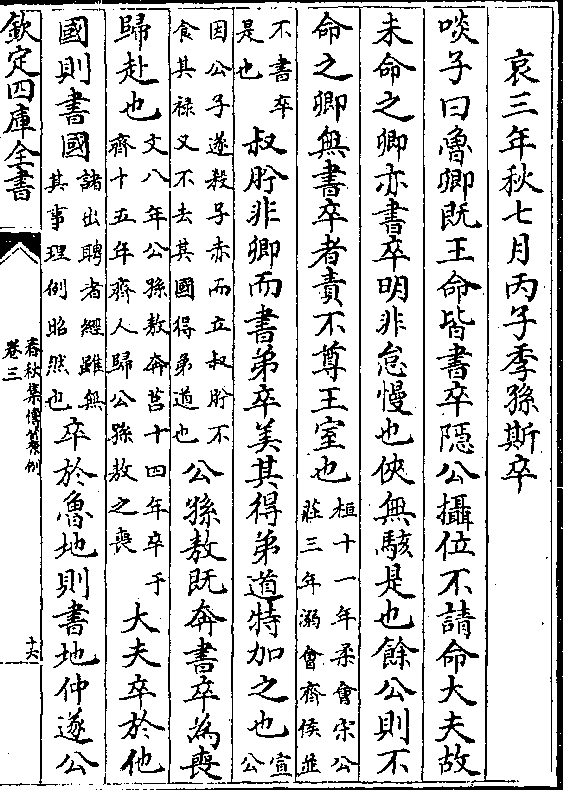 哀三年秋七月丙子季孫斯卒
啖子曰魯卿既王命皆書卒隱公攝位不請命大夫故
未命之卿亦書卒明非怠慢也俠無駭是也餘公則不
命之卿無書卒者責不尊王室也桓十一年柔會宋公莊三年溺會齊侯並
不書卒是也叔肸非卿而書弟卒美其得弟道特加之也宣公
因公子遂殺子赤而立叔肸不食其禄又不去其國得弟道也公孫敖既奔書卒為喪
歸赴也文八年公孫敖奔莒十四年卒于齊十五年齊人歸公孫敖之喪大夫卒於他
國則書國諸出聘者經雖無其事理例昭然也卒於魯地則書地仲遂公
欽定四庫全書
春秋集傳纂例
卷三
十六